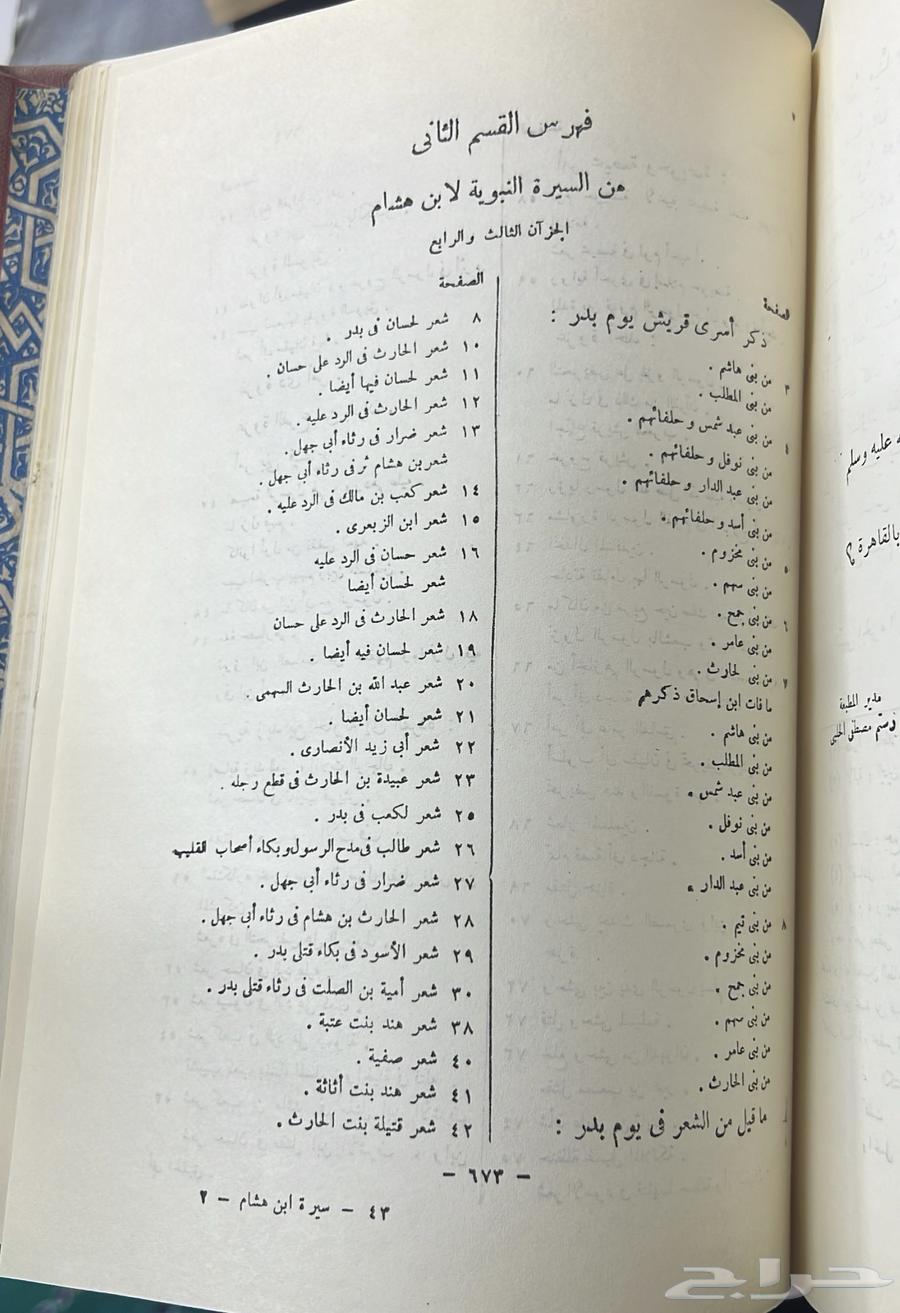 فهرس القسم الثانى
من السيرة النبوية لابن هشام
الجزآن الثالث والرابع
صفحة
ذكر أسرى قريش يوم بدر :
٣ من بنى هاشم .
من بنى المطلب .
من بنى عبد شمس وحلفائهم .
٤ من بنى نوفل وحلفائهم .
من بنى عبد الدار وحلفائهم .
من بنى أسد وحلفائهم .
٥ من بنى مخزوم .
من بنى سهم .
من بنى جمح .
٦ من بنى عامر .
من بنى لحارث .
٧ ما فات ابن إسحاق ذكرهم
من بنى هاشم .
من بنى المطلب .
من بنى عبد شمس .
من بنى نوفل .
من بنى أسد .
من بنى عبد الدار .
٨ من بنى تيم .
من بنى مخزوم .
من بنى جمح .
من بنى سهم .
من بنى عامر .
من بنى الحارث .
ما قيل من الشعر فى يوم بدر :
الصفحة
٨ شعر لحسان فى بدر .
١٠ شعر الحارث فى الرد على حسان .
١١ شعر لحسان فيها أيضا .
١٢ شعر الحارث فى الرد عليه .
١٣ شعر ضرار فى رثاء أبى جهل .
شعر بن هشام ثر فى رثاء أبى جهل .
١٤ شعر كعب بن مالك فى الرد عليه .
١٥ شعر ابن الزبعرى .
١٦ شعر حسان فى الرد عليه
شعر لحسان أيضا
١٨ شعر الحارث فى الرد على حسان
١٩ شعر لحسان فيه أيضا .
٢٠ شعر عبد الله بن الحارث السهمى .
٢١ شعر لحسان أيضا .
٢٢ شعر أبى زيد الأنصارى .
٢٣ شعر عبيدة بن الحارث فى قطع رجله .
٢٥ شعر لكعب فى بدر .
٢٦ شعر طالب فى مدح الرسول وبكاء أصحاب القليب
٢٧ شعر ضرار فى رثاء أبى جهل .
٢٨ شعر الحارث بن هشام فى رثاء أبى جهل .
٢٩ شعر الأسود فى بكاء قتلى بدر .
٣٠ شعر أمية بن الصلت فى رثاء قتلى بدر .
٣٨ شعر هند بنت عتبة .
٤٠ شعر صفية .
٤١ شعر هند بنت أثاثة .
٤٢ شعر قتيلة بنت الحارث .
— ٦٧٣ —
٤٣ — سيرة ابن هشام — ٢
عليه وسلم
بالقاهرة
مدير المطبعة
رستم مصطفى الحلبى
حراج